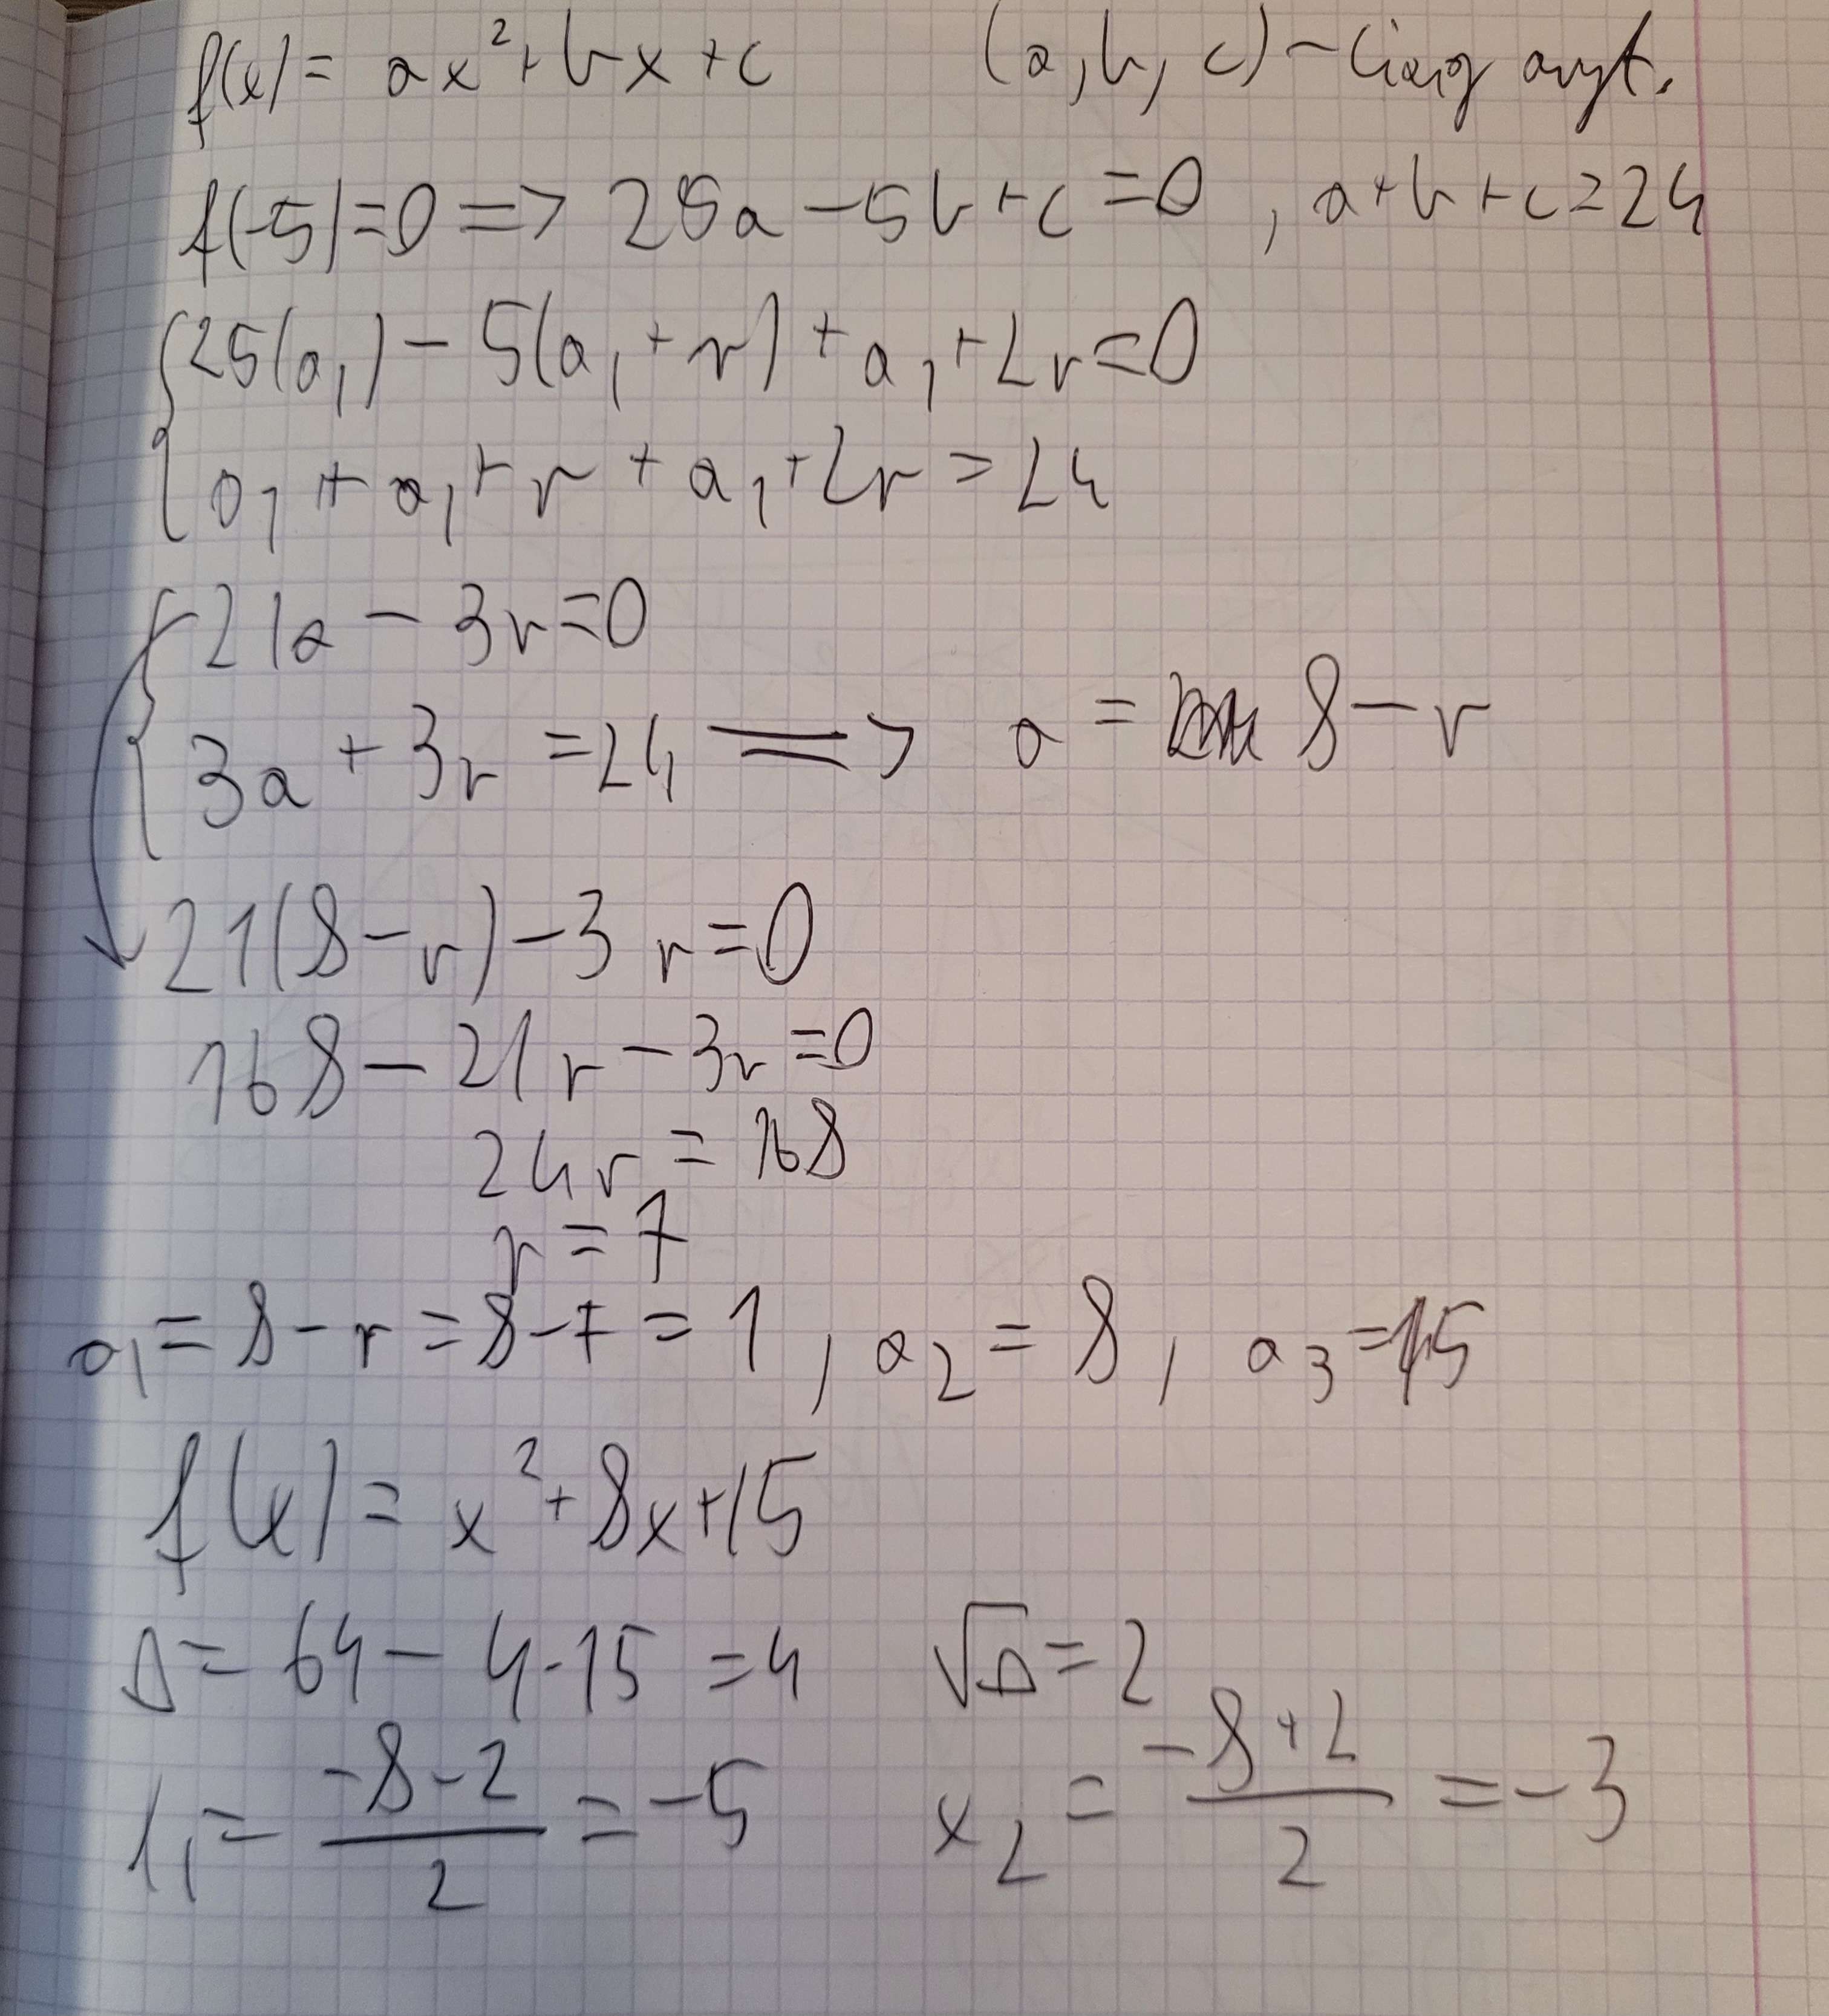 f(x) = ax²+bx+c (a,b,c) - ciąg aryt.
f(-5)=0 => 25a-5b+c=0, a+b+c=24
25(a₁)-5(a₁+r)+a₁+2r=0
a₁+a₁+r+a₁+2r=24
21a-3r=0
3a+3r=24 => a = 8-r
21(8-r)-3r=0
168-21r-3r=0
24r=168
r=7
a₁=8-r=8-7=1, a₂=8, a₃=15
f(x)=x²+8x+15
Δ=64-4·15=4 √Δ=2
x₁=(-8-2)/2=-5 x₂=(-8+2)/2=-3